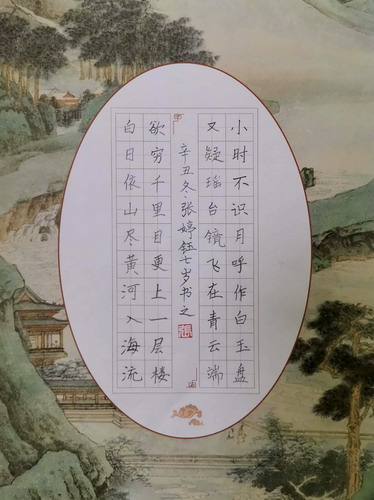 小时不识月呼作白玉盘
又疑瑶台镜飞在青云端
辛丑冬·张婷钰七岁书之
欲穷千里目更上一层楼
白日依山尽黄河入海流